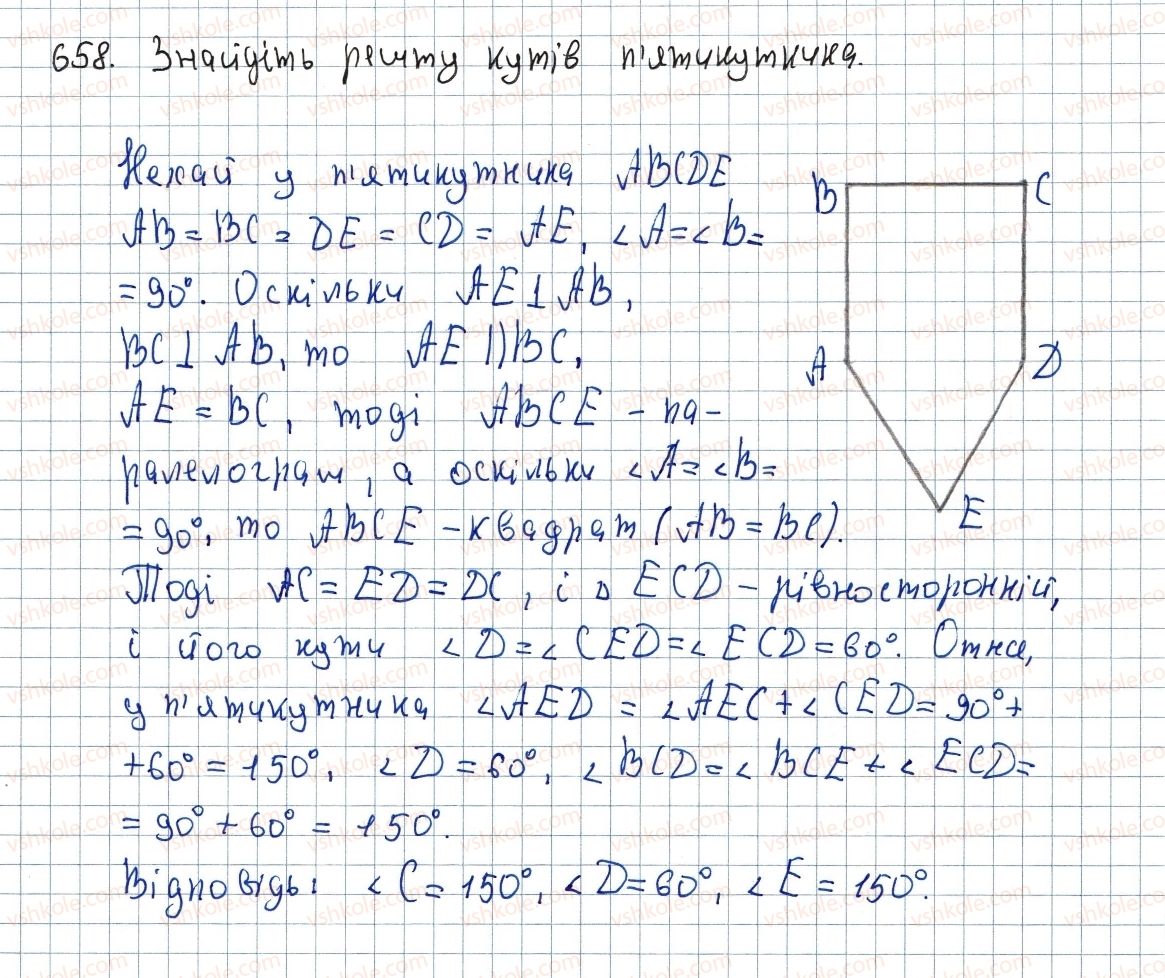 658. Знайдіть решту кутів п'ятикутника.
Нехай у п'ятикутника ABCDE
AB = BC = DE = CD = AE, ∠A = ∠B =
= 90°. Оскільки AE ⊥ AB,
BC ⊥ AB, то AE || BC,
AE = BC, тоді ABCE - па-
ралелограм, а оскільки ∠A = ∠B =
= 90°, то ABCE - квадрат (AB = BC).
Тоді AC = ED = DC, і △ ECD - рівносторонній,
і його кути ∠D = ∠CED = ∠ECD = 60°. Отже,
у п'ятикутника ∠AED = ∠AEC + ∠CED = 90° +
+ 60° = 150°, ∠D = 60°, ∠BCD = ∠BCE + ∠ECD =
= 90° + 60° = 150°.
Відповідь: ∠C = 150°, ∠D = 60°, ∠E = 150°.
B
C
A
D
E
vshkole.com